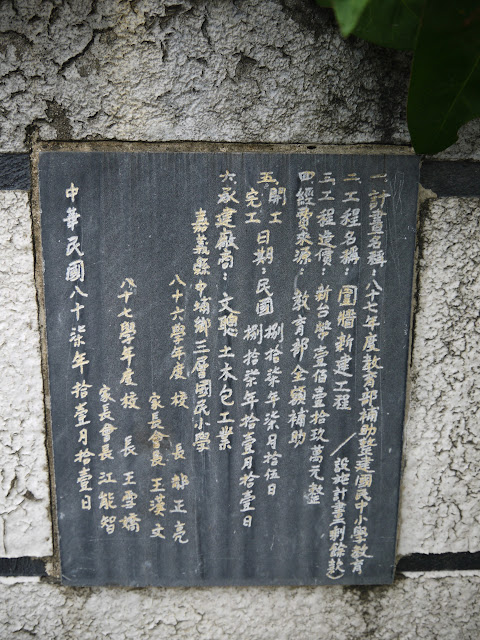 一.計畫名稱：八十七年度教育部補助整建國民中小學教育
設施計畫(剩餘款)
二.工程名稱：圍牆新建工程
三.工程造價：新台幣壹佰壹拾玖萬元整
四.經費來源：教育部全額補助
五.開工日期：民國捌拾柒年柒月拾伍日
完工 捌拾柒年拾壹月拾壹日
六.承建廠商：文聰土木包工業
嘉義縣中埔鄉三層國民小學
八十六學年度 校長 鄭正亮
家長會長 王漢文
八十七學年度 校長 王雪嬌
家長會長 江能智
中華民國八十柒年拾壹月拾壹日